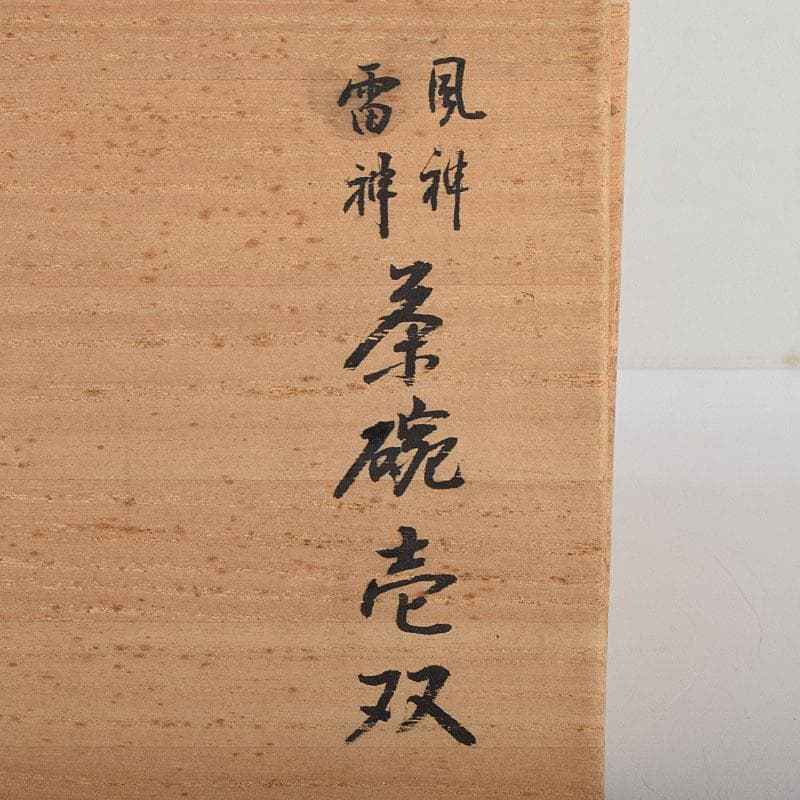 風神
雷神
茶碗壱双